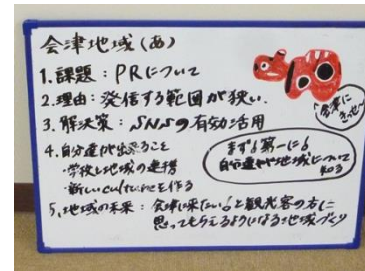 会津地域(あ)
1.課題：PRについて
2.理由：発信する範囲が狭い.
3.解決策：SNSの有効活用
4.自分達が出来ること
・学校と地域の連携
・新しいcultureを作る
会津に
まず第一に
自分達が地域について
知る
5.地域の未来：会津に来たい!と観光客の方に
思ってもらえるようになる地域づくり